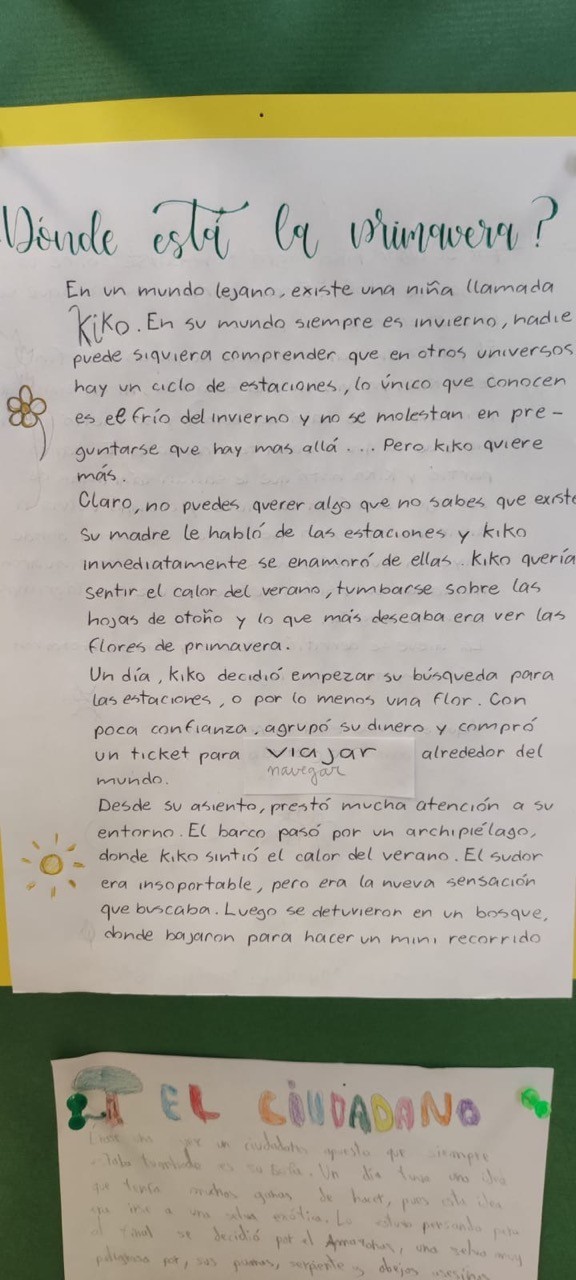 ¿Dónde está la primavera?
En un mundo lejano, existe una niña llamada
Kiko. En su mundo siempre es invierno, nadie
puede siquiera comprender que en otros universos
hay un ciclo de estaciones, lo único que conocen
es el frío del invierno y no se molestan en pre-
guntarse que hay mas allá... Pero kiko quiere
más.
Claro, no puedes querer algo que no sabes que existe
Su madre le habló de las estaciones y kiko
inmediatamente se enamoró de ellas. Kiko quería
sentir el calor del verano, tumbarse sobre las
hojas de otoño y lo que más deseaba era ver las
flores de primavera.
Un día, kiko decidió empezar su búsqueda para
las estaciones, o por lo menos una flor. Con
poca confianza, agrupó su dinero y compró
un ticket para viajar alrededor del
navegar
mundo.
Desde su asiento, prestó mucha atención a su
entorno. El barco pasó por un archipiélago,
donde kiko sintió el calor del verano. El sudor
era insoportable, pero era la nueva sensación
que buscaba. Luego se detuvieron en un bosque,
donde bajaron para hacer un mini recorrido
EL CIUDADANO
un ciudadano que siempre
tumbado en su sofá. Un día tuvo una idea
que tenía muchas ganas de hacer, pues esta idea
que irse a una selva exótica. Lo estuvo pensando para
el final se decidió por el Amazonas, una selva muy
peligrosa por, sus pumas, serpiente y abejas asesinas